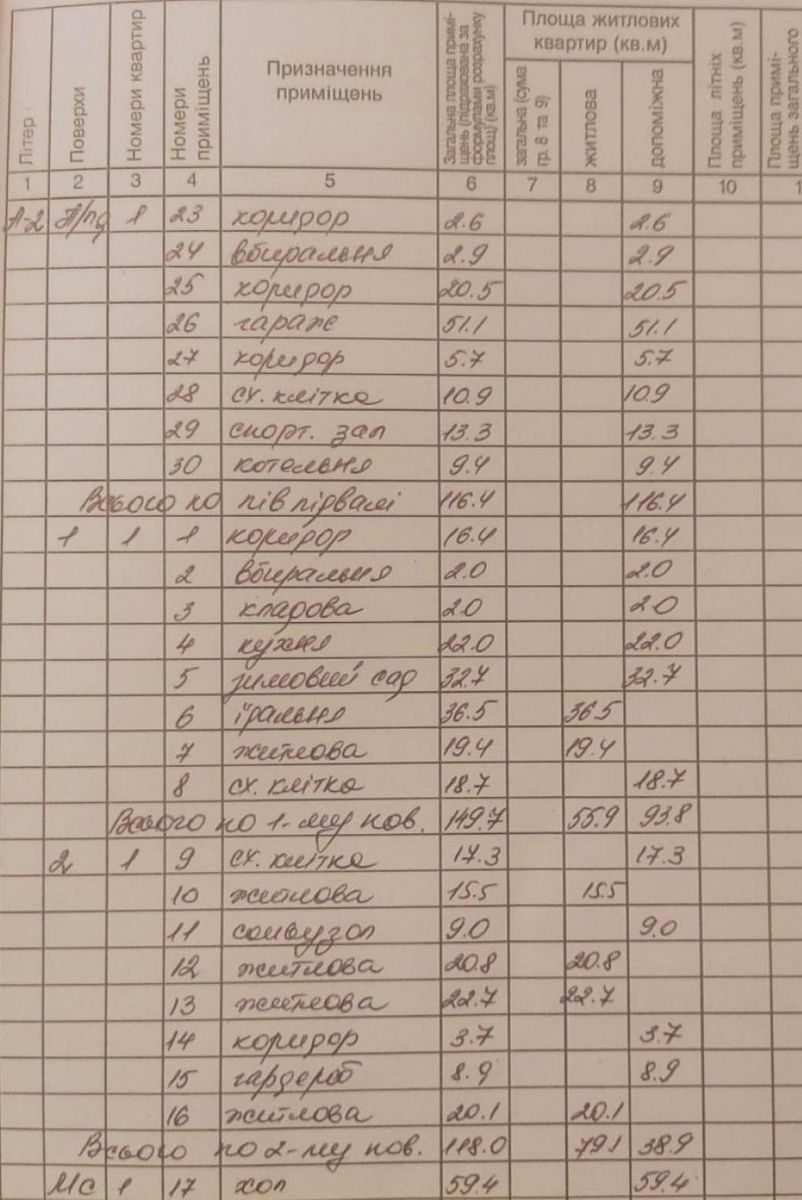 Літер Поверхи Номери квартир Номери приміщень Призначення приміщень Загальна площа приміщень (підрахована за формулами розрахунку площ) (кв.м) Площа житлових квартир (кв.м) Площа літніх приміщень (кв.м) Площа приміщень загального
загальна (сума гр. 8 та 9) житлова допоміжна
1 2 3 4 5 6 7 8 9 10 1
А-2 П/пд 1 23 коридор 2.6 2.6
24 вбиральня 2.9 2.9
25 коридор 20.5 20.5
26 гараж 51.1 51.1
27 коридор 5.7 5.7
28 сх. клітка 10.9 10.9
29 спорт. зал 13.3 13.3
30 котельня 9.4 9.4
Всього по пів підвалі 116.4 116.4
1 1 1 коридор 16.4 16.4
2 вбиральня 2.0 2.0
3 кладова 2.0 2.0
4 кухня 22.0 22.0
5 зимовий сад 32.7 32.7
6 їдальня 36.5 36.5
7 житлова 19.4 19.4
8 сх. клітка 18.7 18.7
Всього по 1-му пов. 149.7 55.9 93.8
2 1 9 сх. клітка 17.3 17.3
10 житлова 15.5 15.5
11 санвузол 9.0 9.0
12 житлова 20.8 20.8
13 житлова 22.7 22.7
14 коридор 3.7 3.7
15 гардероб 8.9 8.9
16 житлова 20.1 20.1
Всього по 2-му пов. 118.0 79.1 38.9
Мс 1 17 хол 59.4 59.4